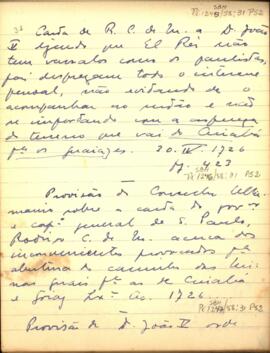 SAN
Pi 1249/58;31 P52
3) Carta de R. C. de M. a D. João
V dizendo que El Rei não
tem vassalos como os paulistas,
pois desprezam todo o interesse
pessoal, não evitando de o
acompanhar no sertão e não
se importando com a aspereza
do terreno que vai do Cuiabá
pª os guaiazes. 30. IV. 1726
M. 423
SAN
Provisão do Conselho Ultra
marino sobre a carta do gov or
e cap general de S. Paulo,
Rodrigo C. de M. acerca dos
inconvenientes provocados pª
abertura do caminho das Mi
nas gerais pª as de Cuiabá
e Goiaz Lxª Oc. 1726.
SAN
P52
Provisão de D. João V